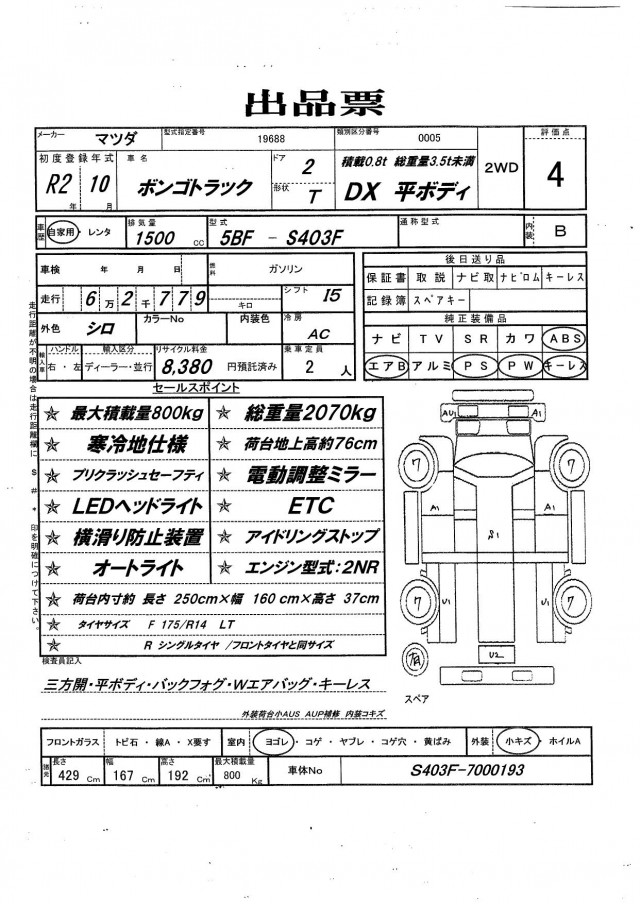 出品票
メーカー マツダ 型式指定番号 19688 類別区分番号 0005 2WD 評価点 4
初度登録年式 R2年 10月 車名 ボンゴトラック ドア 2 形状 T 積載0.8t 総重量3.5t未満 DX 平ボディ
車歴 自家用・レンタ 排気量 1500 cc 型式 5BF - S403F 通称型式 内装 B
車検 年 月 日 燃料 ガソリン
走行 6万2千779 キロ シフト I5
外色 シロ カラーNo 内装色 冷房 AC
輸入車 ハンドル 右・左 輸入区分 ディーラー・並行 リサイクル料金 8,380 円預託済み 乗車定員 2 人
後日送り品
保証書 取説 ナビ取 ナビロム キーレス
記録簿 スペアキー
純正装備品
ナビ TV SR カワ ABS
エアB アルミ PS PW キーレス
走行距離が不明の場合は走行距離欄に S # * 印を明確につけて下さい。
セールスポイント
☆ 最大積載量800kg ☆ 総重量2070kg
☆ 寒冷地仕様 ☆ 荷台地上高約76cm
☆ プリクラッシュセーフティ ☆ 電動調整ミラー
☆ LEDヘッドライト ☆ ETC
☆ 横滑り防止装置 ☆ アイドリングストップ
☆ オートライト ☆ エンジン型式:2NR
☆ 荷台内寸約 長さ 250cm×幅 160cm×高さ 37cm
☆ タイヤサイズ F 175/R14 LT
☆ R シングルタイヤ /フロントタイヤと同サイズ
AU1 A1
7 7
A1 A1
S1
7 7
U1 U1
有 U2
スペア
検査員記入
三方開・平ボディ・バックフォグ・Wエアバッグ・キーレス
外装荷台小AUS AUP補修 内装コキズ
フロントガラス トビ石・線A・X要す 室内 ヨゴレ・コゲ・ヤブレ・コゲ穴・黄ばみ 外装 小キズ・ホイルA
諸元 長さ 429 Cm 幅 167 Cm 高さ 192 Cm 最大積載量 800 Kg 車体No S403F-7000193